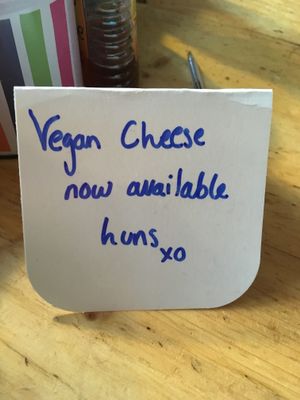 Vegan Cheese
now available
huns xo